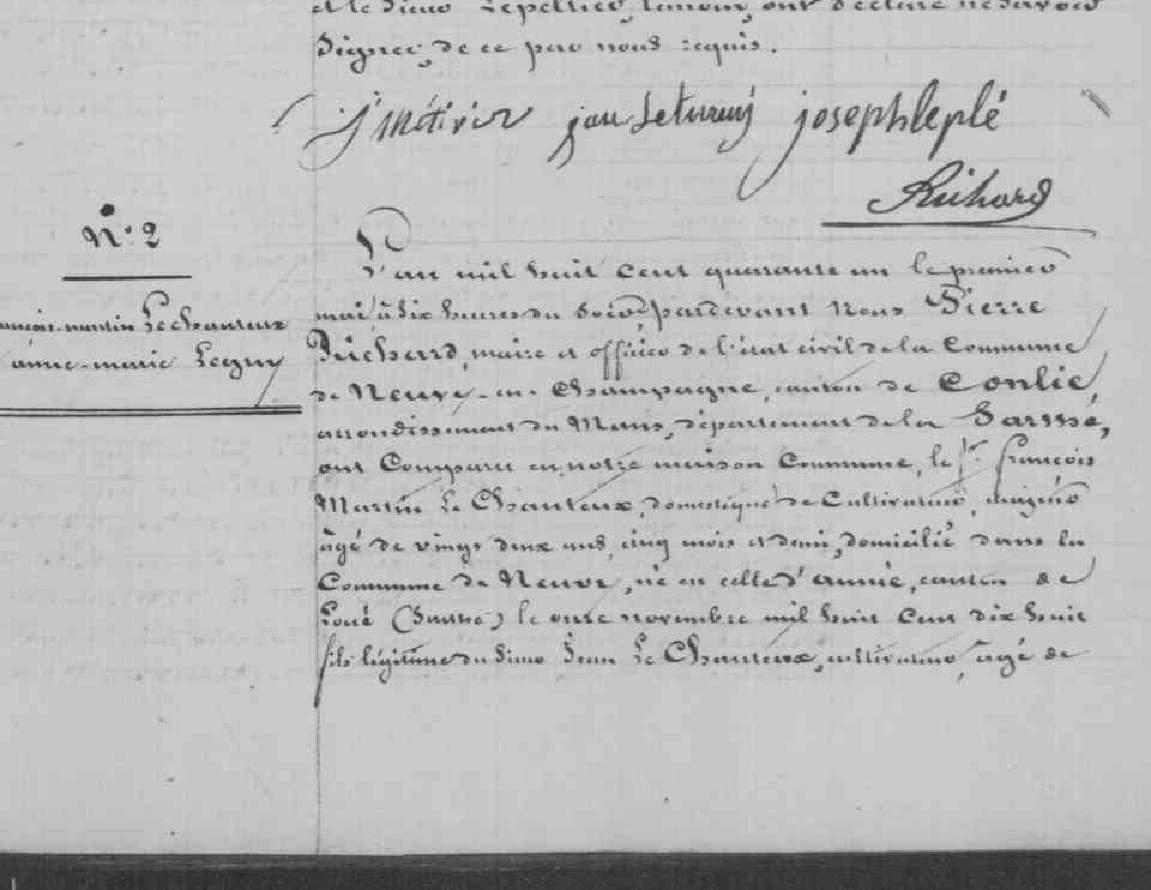 et le sieur Lepeltier, témoin, ont déclaré ne savoir
signer, de ce par nous requis.
j Métivier jan Leturmy joseph leplé
Richard
N.° 2
L'an mil huit cent quarante un le premier
mai, à dix heures du soir, pardevant nous Pierre
françois-martin Lechanteux
Richard, maire et officier de l'état civil de la Commune
anne-marie Leguy
de Neuvy-en-Champagne, canton de Conlie,
arrondissement du Mans, département de la Sarthe,
ont Comparu en notre maison Commune, le s.r françois
Martin Le Chanteux, domestique de Cultivateur, mineur
âgé de vingt deux ans, cinq mois et demi, domicilié dans la
Commune de Neuvy, né en celle d'amné, canton de
Loué (Sarthe) le onze novembre mil huit cent dix huit
fils légitime du sieur Jean Le Chanteux, cultivateur, âgé de